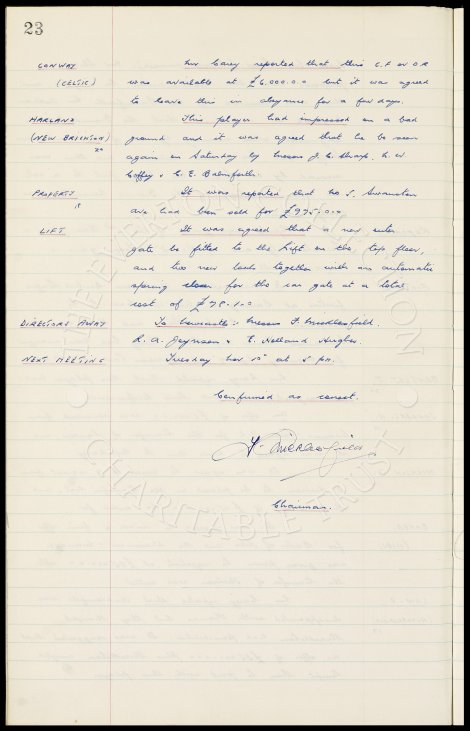 23
CONWAY
(CELTIC)
Mr Carey reported that this C.F or O.R
was available at £6,000.0.0 but it was agreed
to leave this in abeyance for a few days.
HARLAND
(NEW BRIGHTON)
This player had impressed on a bad
ground and it was agreed that he be seen
again on Saturday by Messrs J. C. Sharp, C. W.
Coffey & C. E. Balmforth.
PROPERTY
It was reported that No 5, Swanston
Ave had been sold for £975.0.0
LIFT
It was agreed that a new outer
gate be fitted to the lift on the top floor,
and two new locks together with an automatic
spring closer for the car gate at a total
cost of
DIRECTORS AWAY
To Newcastle:- Messrs F. Micklesfield,
R. A. Joynson & T. Holland Hughes.
NEXT MEETING
Tuesday Nov at 5 pm.
Confirmed as correct.
F. Micklesfield
Chairman.
THE EVERTON COLLECTION
CHARITABLE TRUST